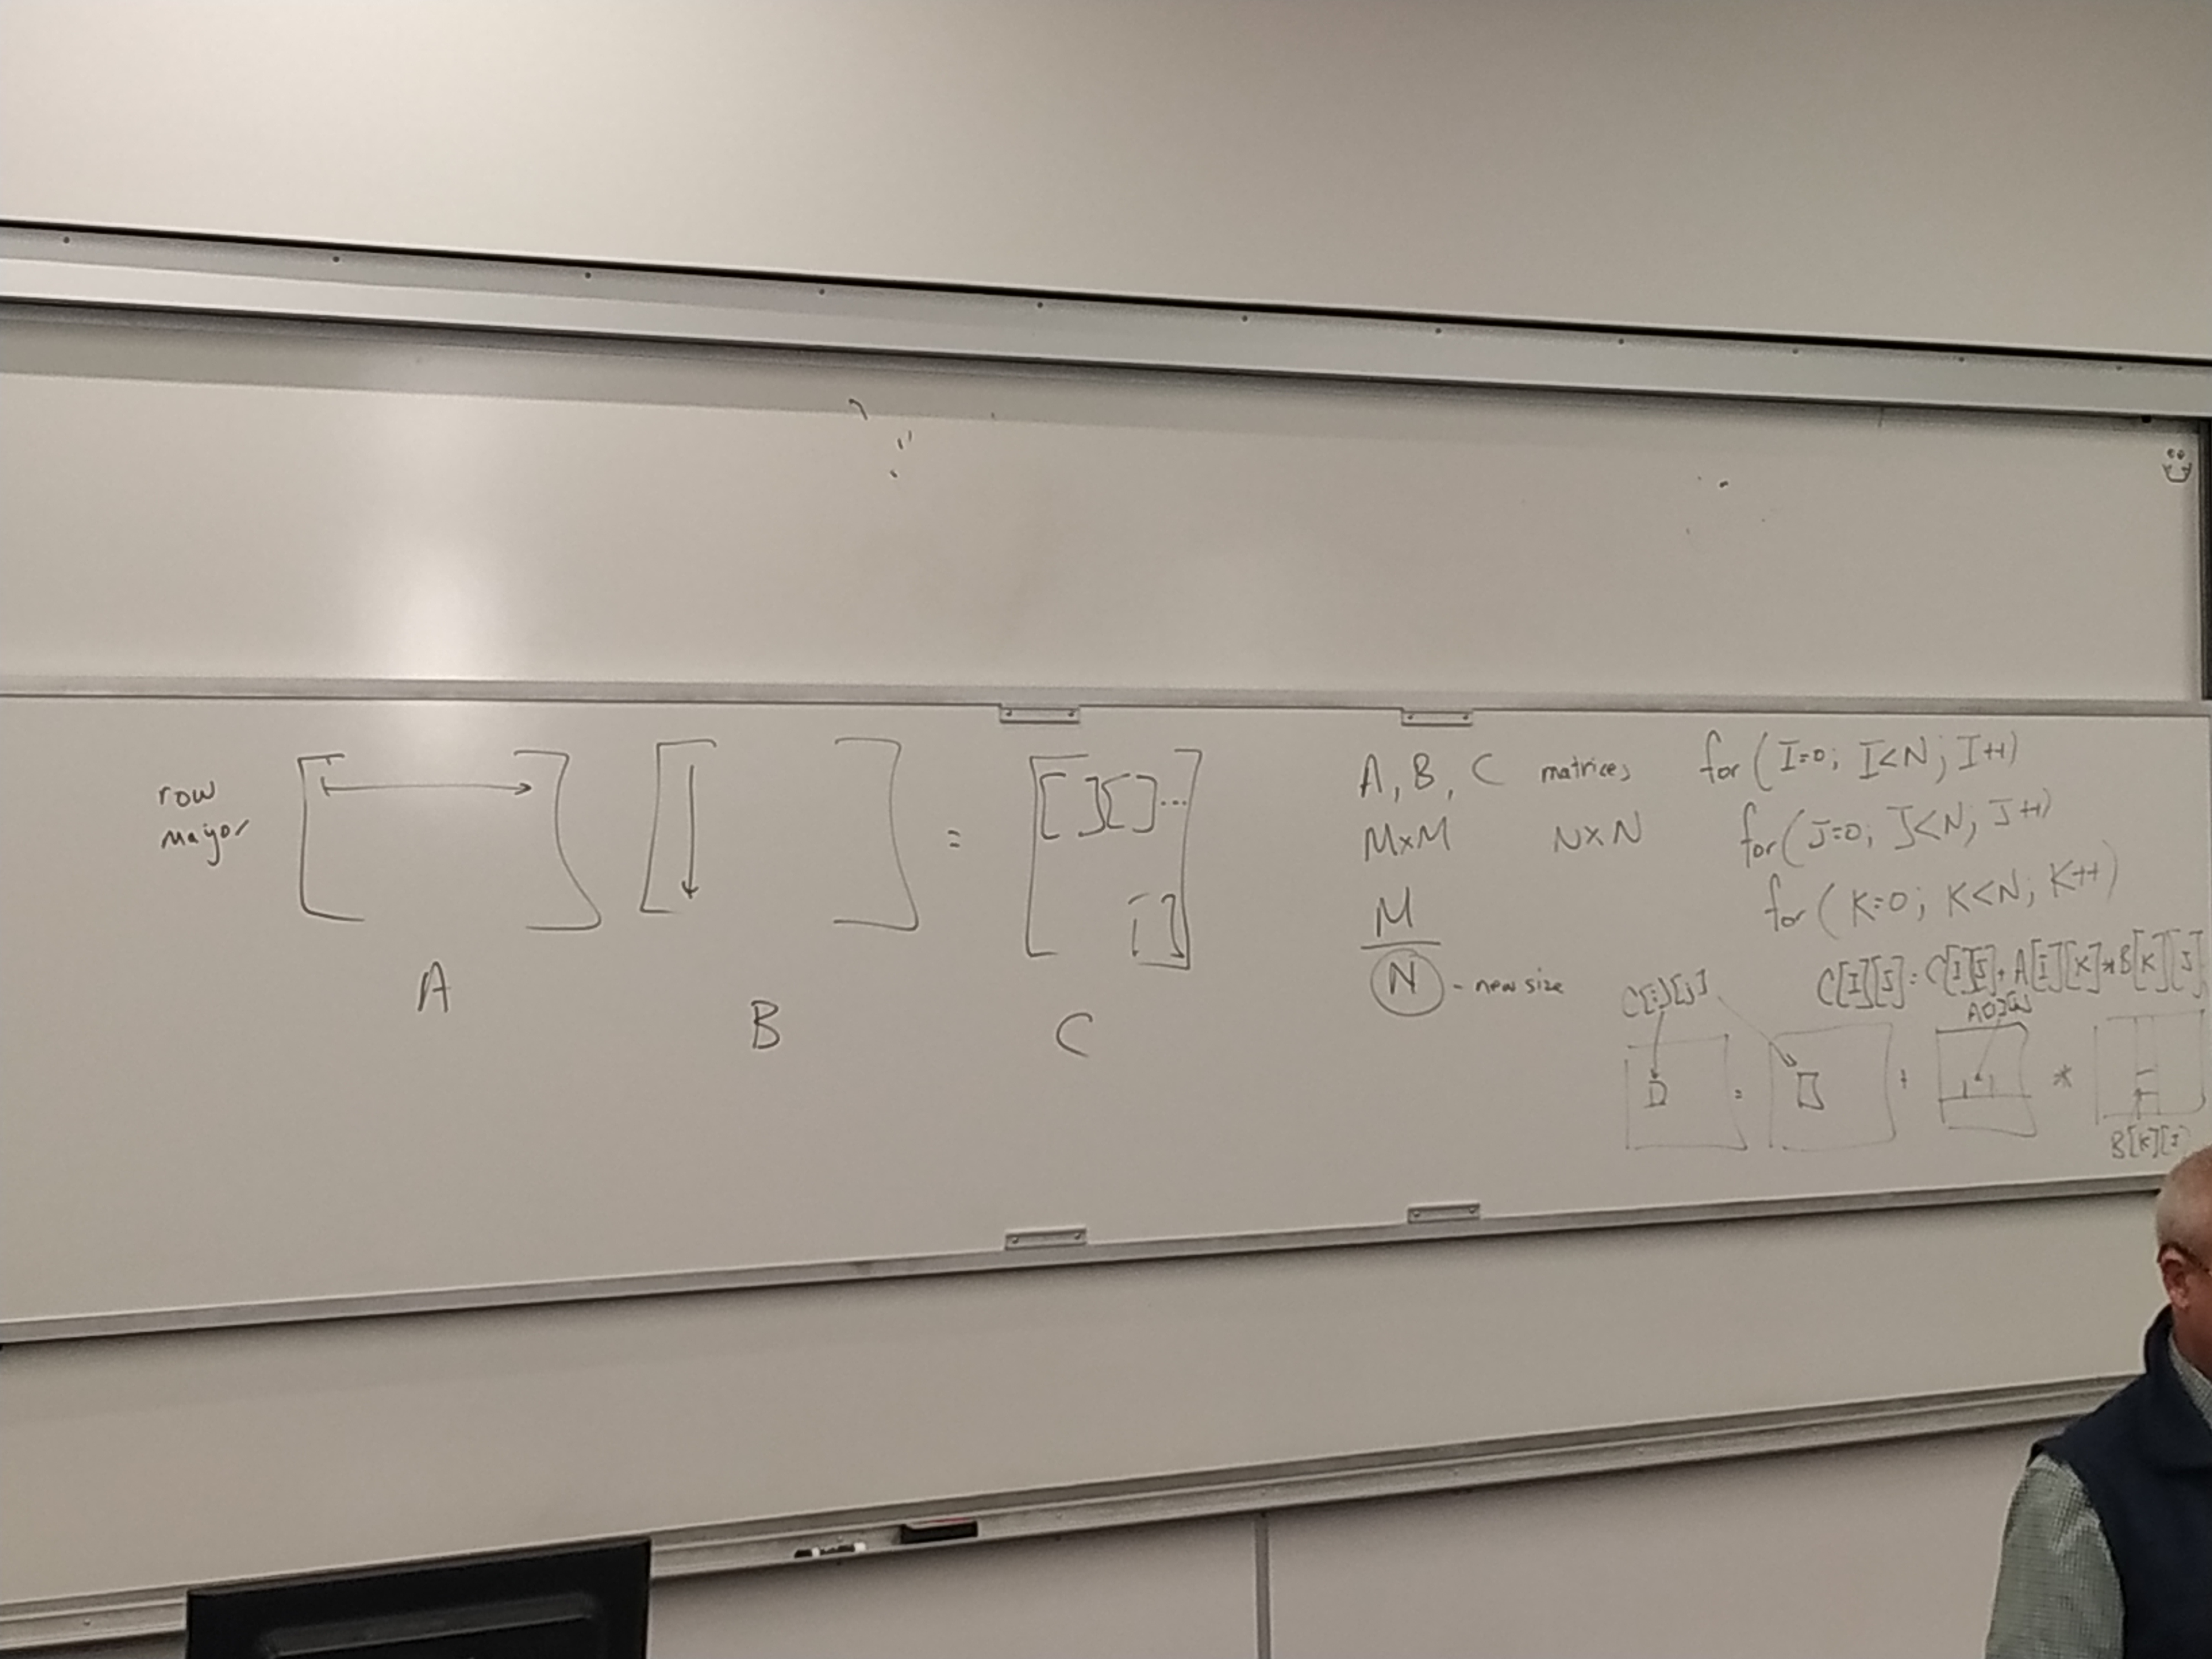 row
major
A
B
=
C
A, B, C matrices
MxM NxN
M
N - new size
for (I=0; I<N; I++)
for (J=0; J<N; J++)
for (K=0; K<N; K++)
C[I][J] = C[I][J] + A[I][K] * B[K][J]
C[i][j]
= + *
B[K][J]